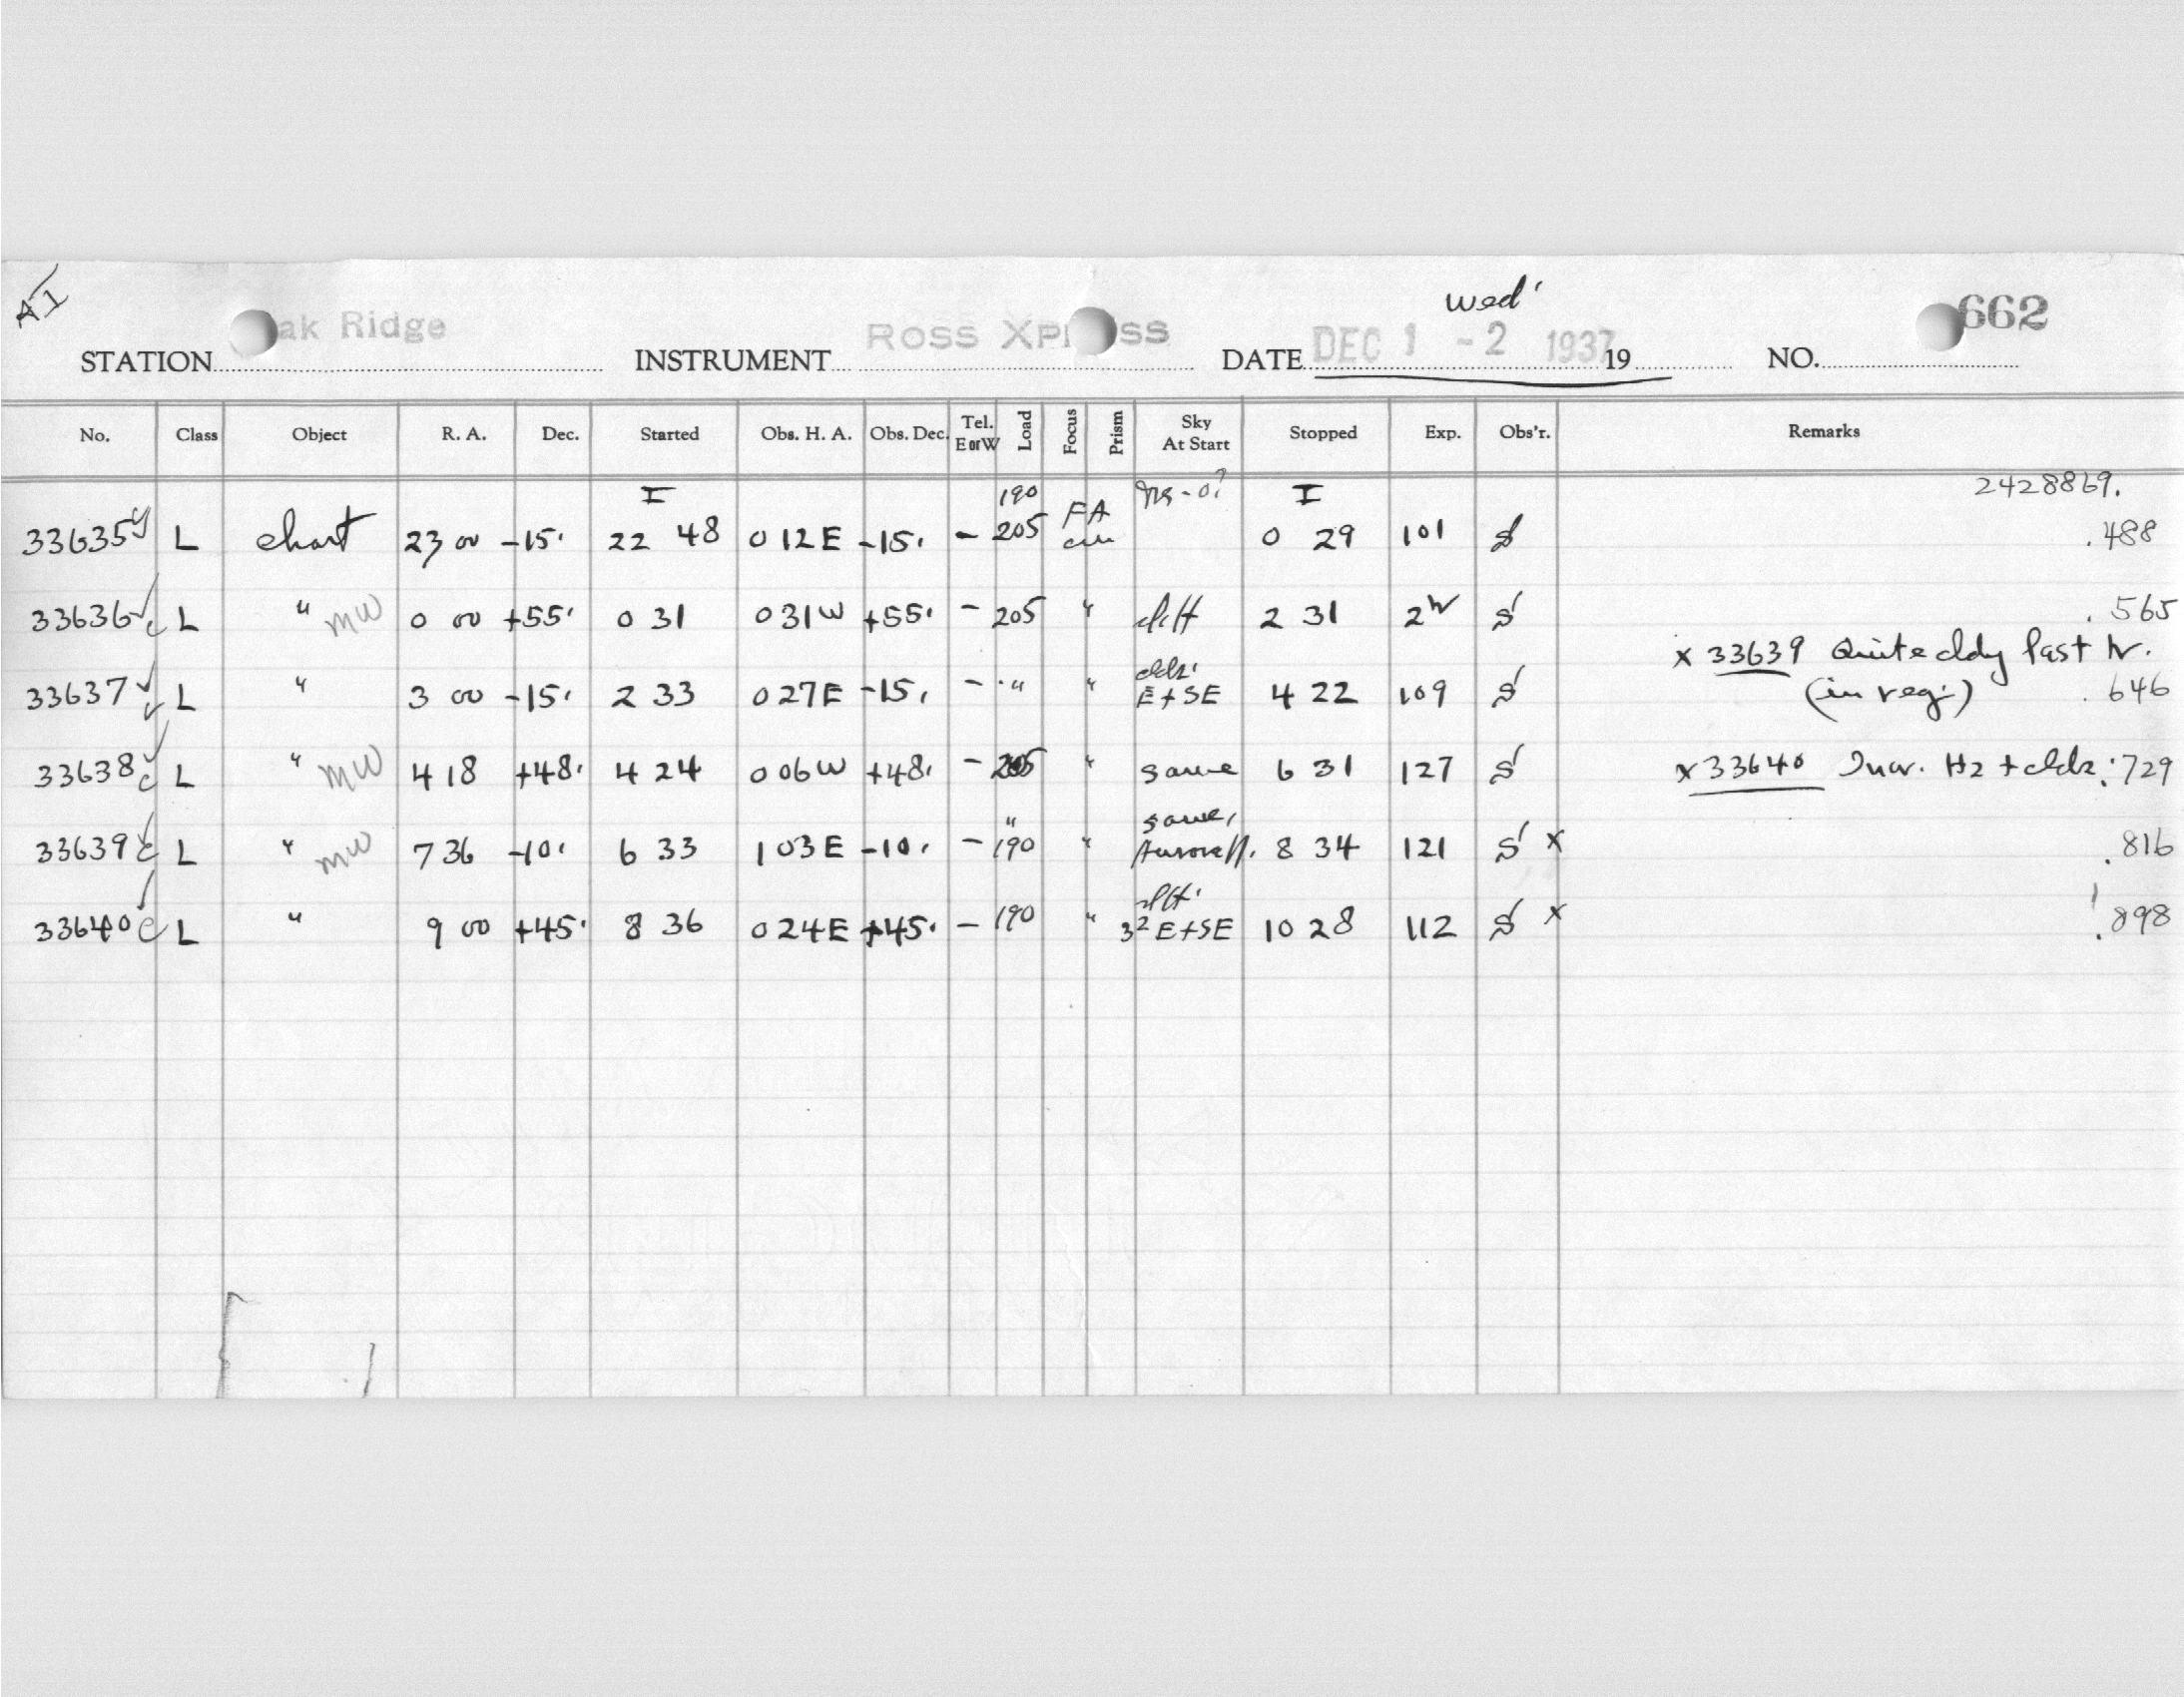 A1
Wed'
STATION ak Ridge INSTRUMENT ROSS XPRESS DATE DEC 1 - 2 1937 19 NO. 662
No. Class Object R. A. Dec. Started Obs. H. A. Obs. Dec. Tel. E or W Load Focus Prism Sky At Start Stopped Exp. Obs'r. Remarks
I 190 I 2428869.
33635 L chart 23 00 -15. 22 48 0 12 E -15. - 205 FA 0 29 101 S .488
33636 L " MW 0 00 +55. 0 31 0 31 W +55. - 205 " 2 31 2h S .565
x 33639 Quite cldy last hr.
33637 L " 3 00 -15. 2 33 0 27 E -15. - " " E + SE 4 22 109 S (in reg.) .646
33638 L " MW 4 18 +48. 4 24 0 06 W +48. - 205 " same 6 31 127 S x 33640 Incr. Hz + clds. .729
" same,
33639 L " MW 7 36 -10. 6 33 1 03 E -10. - 190 " Aurora 8 34 121 S x .816
33640 L " 9 00 +45. 8 36 0 24 E +45. - 190 " E + SE 10 28 112 S x .898